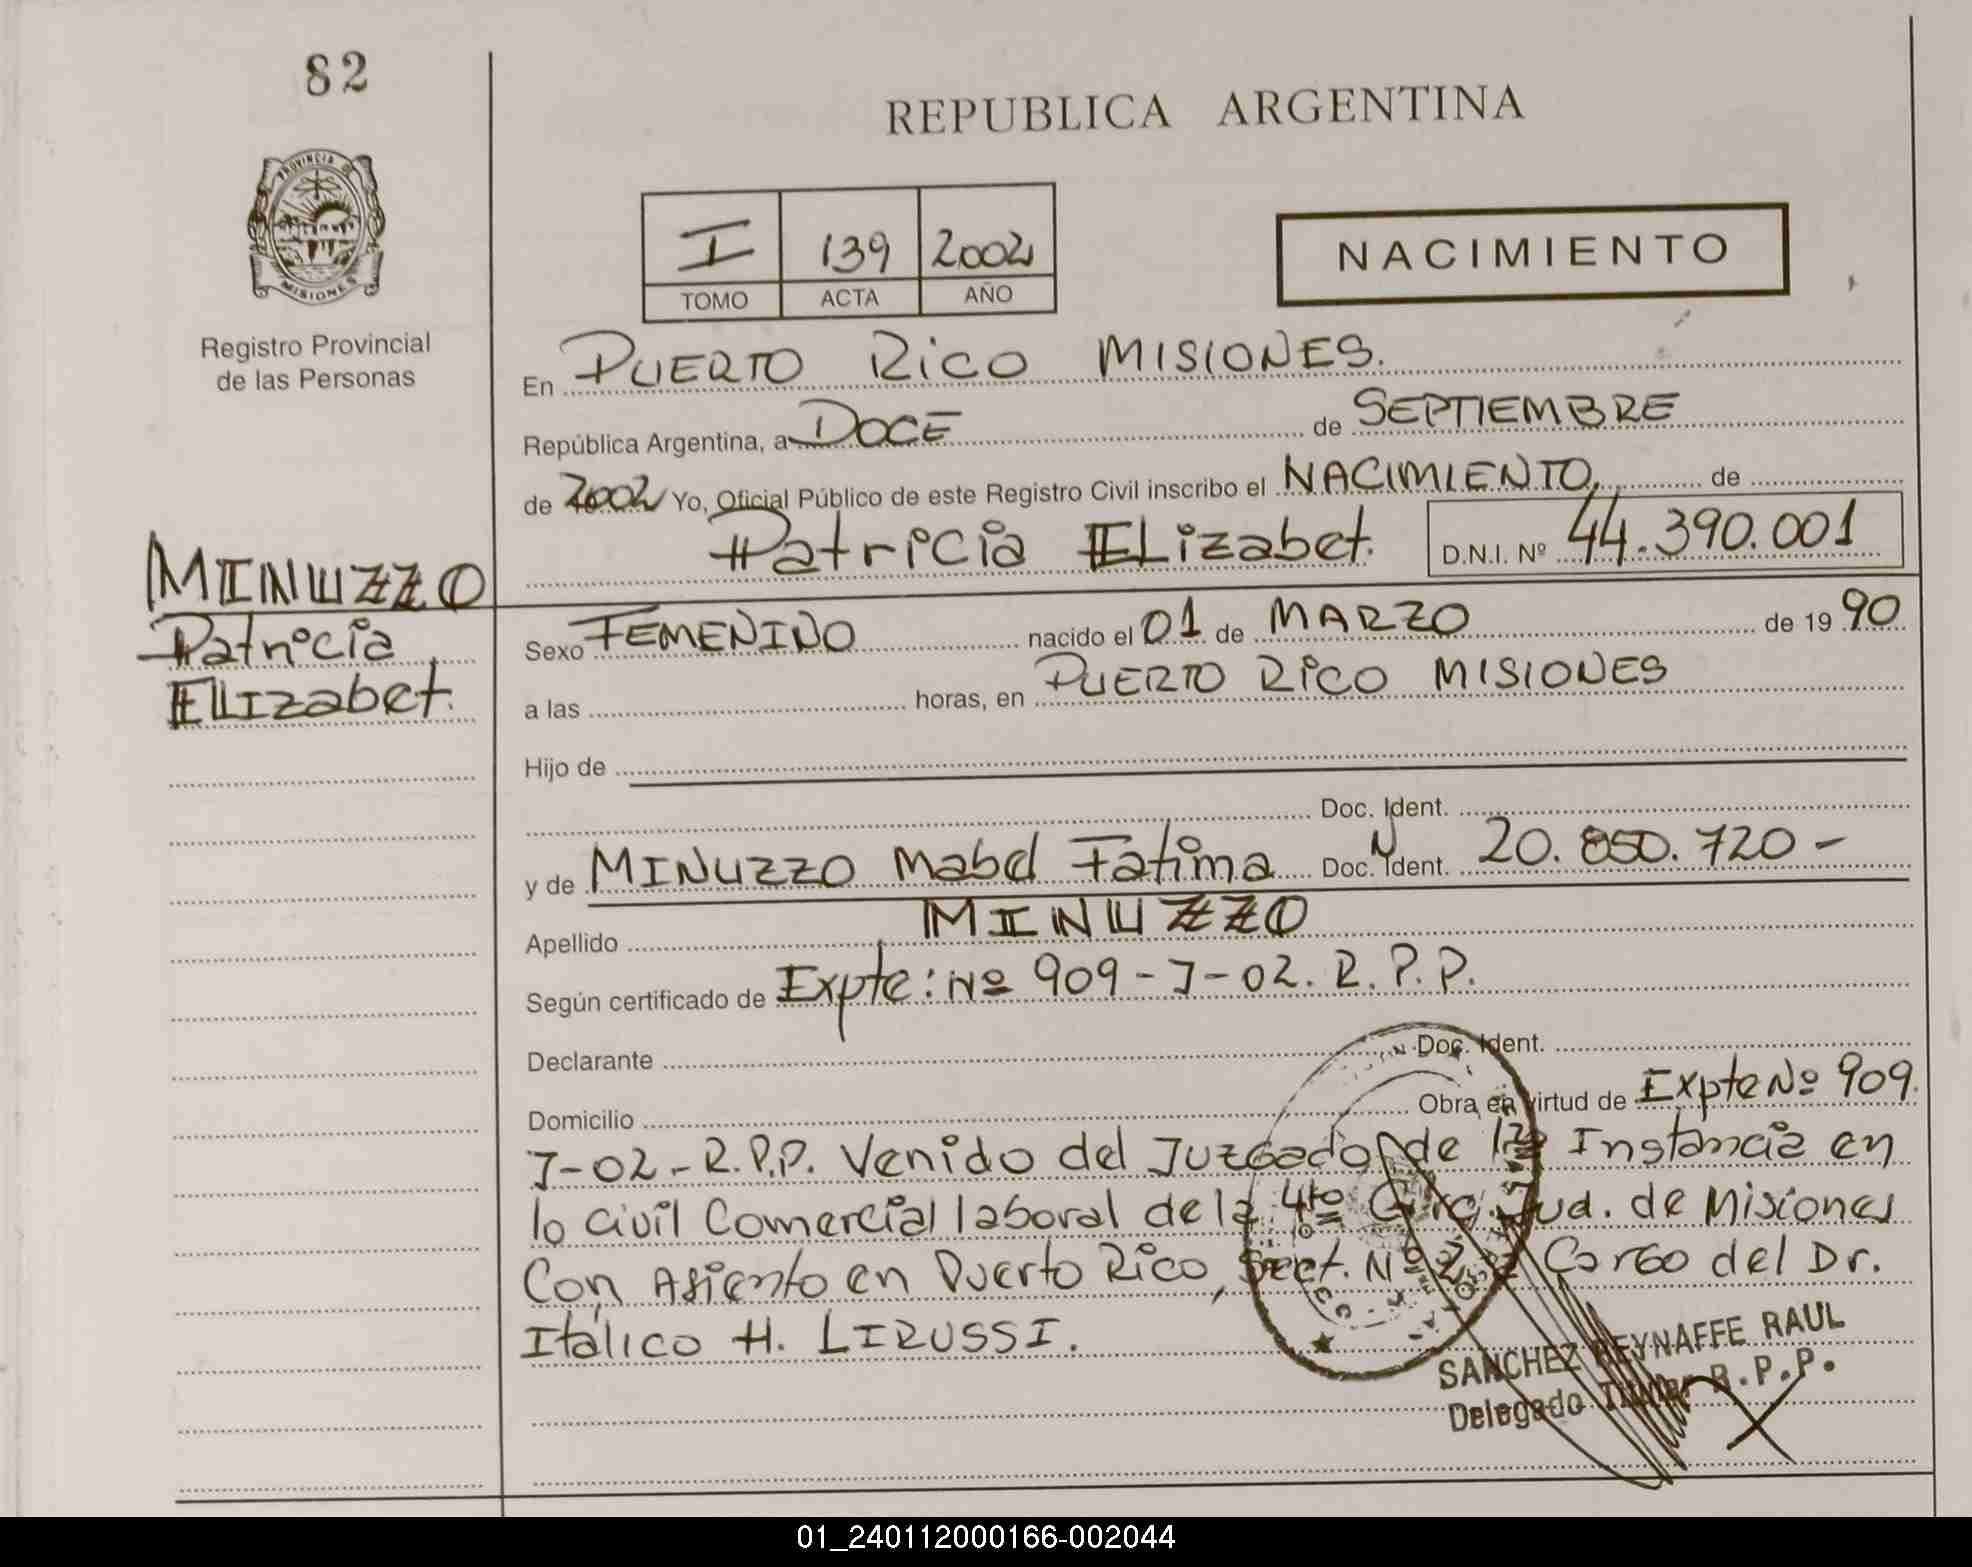 82
REPUBLICA ARGENTINA
PROVINCIA DE
MISIONES
Registro Provincial
de las Personas
I 139 2002
TOMO ACTA AÑO
NACIMIENTO
En PUERTO RICO MISIONES.
República Argentina, a DOCE de SEPTIEMBRE
de 2002 Yo, Oficial Público de este Registro Civil inscribo el NACIMIENTO, de
Patricia ELizabet. D.N.I. Nº 44.390.001
MINUZZO
Patricia
ELIzabet.
Sexo FEMENINO nacido el 01 de MARZO de 19 90
a las horas, en PUERTO RICO MISIONES
Hijo de
Doc. Ident.
y de MINUZZO Mabel Fatima Doc. Ident. 20.850.720-
Apellido MINUZZO
Según certificado de Expte: Nº 909-J-02. R.P.P.
Declarante Doc. Ident.
Domicilio Obra en virtud de Expte Nº 909.
J-02-R.P.P. Venido del Juzgado de 1ra Instancia en
lo civil Comercial laboral de la 4to Circ. Jud. de Misiones
Con Asiento en Puerto Rico, Sect. Nº 2 a Cargo del Dr.
Itálico H. LIRUSSI.
SANCHEZ REYNAFFE RAUL
Delegado Titular R.P.P.
01_240112000166-002044